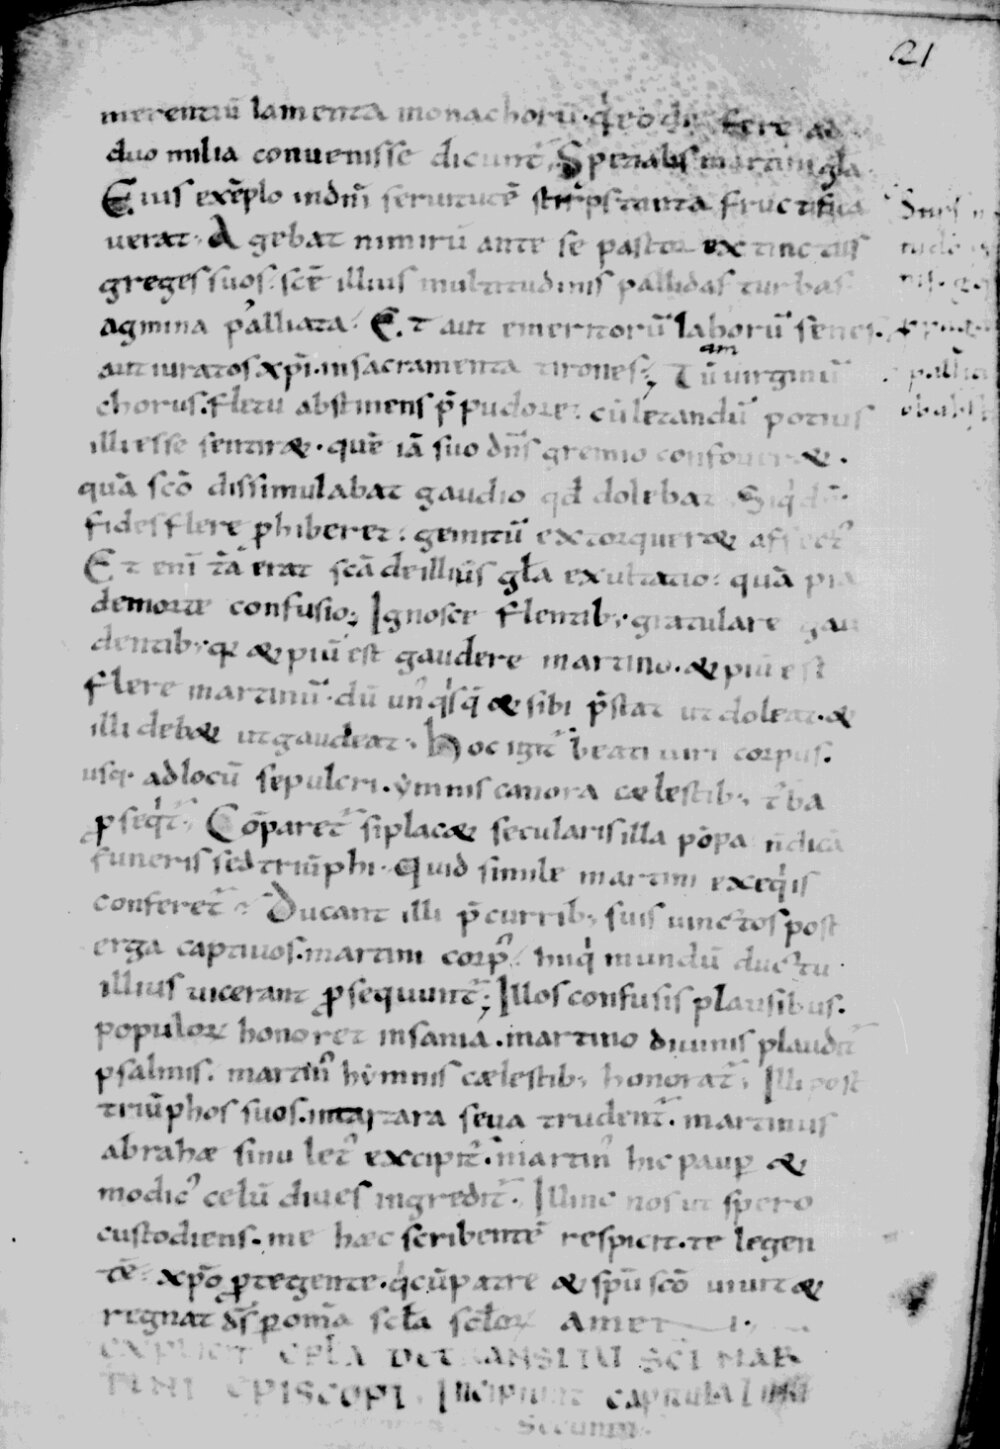 21
merentiū lamenta monachorū. qͥ eo die fere ad
duo milia conuenisse dicunt᷑. Spetialis martini gl̄a.
Eius exēplo in dn̄i seruitutē stirps tanta fructifica
uerat. Agebat nimirū ante se pastor extinctus
greges suos. scē illius multitudinis pallidas turbas.
agmina palliata. Et aut emeritorū laborū senes.
aut iuratos xp̄i in sacramenta tirones. Tū uirginū
am
chorus. fletu abstinens p̄ pudore. cū letandū potius
illi esse sentiret. quē iā suo dn̄s gremio confoueret.
quā scō dissimulabat gaudio qđ dolebat. Siqͥdē
fides flere ꝓhiberet. gemitū extorqueret affectꝰ
Et eni tā erat scā de illius gl̄a exultatio. quā pia
de morte confusio. Ignosce flentib; gratulare gau
dentib; qꝛ & piū est gaudere martino. & piū est
flere martinū. dū unꝰqͥsq; & sibi p̄stat ut doleat. &
illi debet ut gaudeat. Hoc igit᷑ beati uiri corpus.
usq; ad locū sepulcri. ymnis canora cælestib; tꝰba
ꝓseqͥt᷑. Cōparet᷑ si placet secularis illa pōpa n̄ dicā
funeris sed triūphi. Quid simile martini exeqͥis
conferet᷑. Ducant illi p̄ currib; suis uinctos post
terga captiuos. martini corpꝰ hi qͥ mundū ductu
illius uicerant ꝓsequunt᷑. Illos confusis plausibus.
populoꝝ honoret insania. martino diuinis plaudit᷑
psalmis. martinꝰ hymnis cælestib; honorat᷑. Illi post
triūphos suos. in tartara seua trudent᷑. martinus
abrahæ sinu letꝰ excipit᷑. martinꝰ hic paup̱ &
modicꝰ celū diues ingredit᷑. Illinc nos ut spero
custodiens. me hæc scribentē respicit. te legen
tē. xp̄o ꝓtegente. qͥ cū patre & sp̄u scō uiuit &
regnat dš p̱ om̄a sc̄la sc̄loꝝ amen.
EXPLICIT EPL̄A DE TRANSITU SC̄I MAR
TINI EPISCOPI. Incipiunt capitula